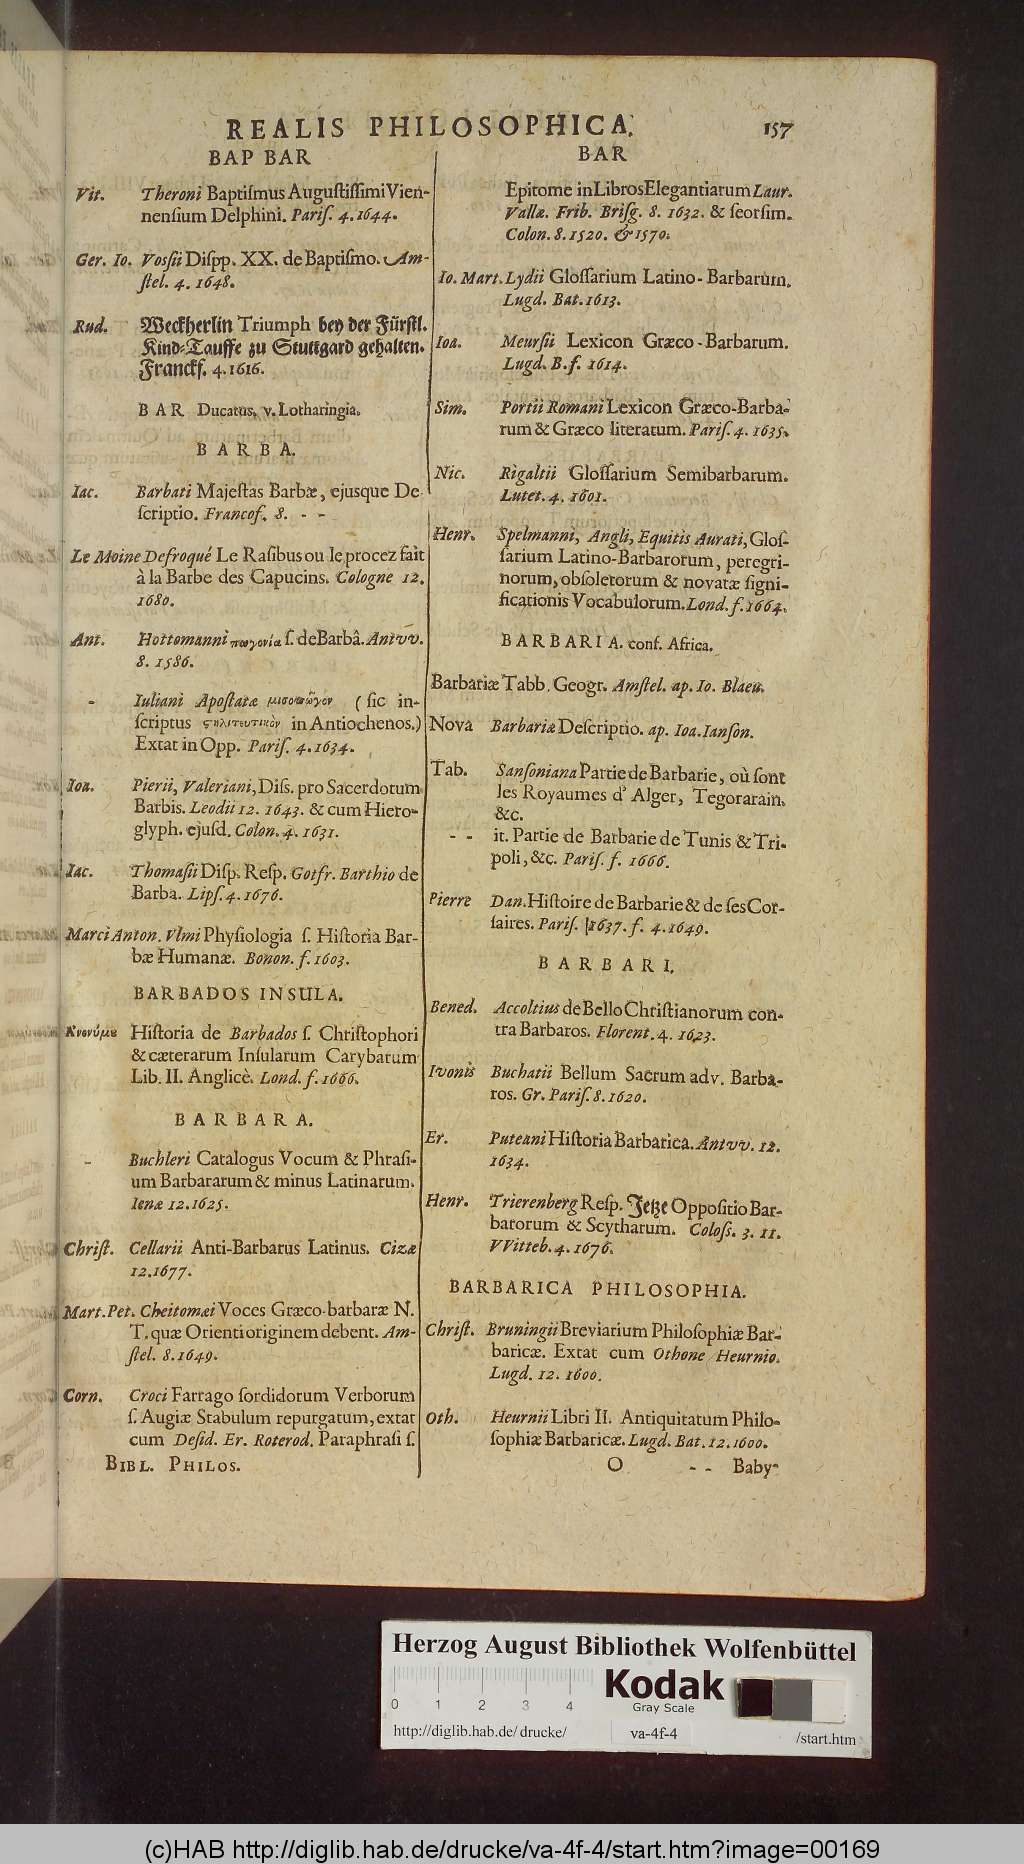 REALIS PHILOSOPHICA. 157
BAP BAR
Vit. Theroni Baptiſmus Auguſtiſſimi Vien-
nenſium Delphini. Pariſ. 4. 1644.
Ger. Io. Voſſii Diſpp. XX. de Baptiſmo. Am-
ſtel. 4. 1648.
Rud. Weckherlin Triumph bey der Fürſtl.
Kind-Tauffe zu Stuttgard gehalten.
Franckf. 4. 1616.
BAR Ducatus, v. Lotharingia.
BARBA.
Iac. Barbati Majeſtas Barbæ, ejusque De
ſcriptio. Francof. 8. - -
Le Moine Defroqué Le Raſibus ou le procez fait
à la Barbe des Capucins. Cologne 12.
1680.
Ant. Hottomanni πωγονία ſ. de Barbâ. Antvv.
8. 1586.
- Iuliani Apoſtatæ μισοπώγον (ſic in-
ſcriptus ςηλιτευτικὸν in Antiochenos.)
Extat in Opp. Pariſ. 4. 1634.
Ioa. Pierii, Valeriani, Diſſ. pro Sacerdotum
Barbis. Leodii 12. 1643. & cum Hiero-
glyph. ejuſd. Colon. 4. 1631.
Iac. Thomaſii Diſp. Reſp. Gotfr. Barthio de
Barba. Lipſ. 4. 1676.
Marci Anton. Vlmi Phyſiologia ſ. Hiſtoria Bar-
bæ Humanæ. Bonon. f. 1603.
BARBADOS INSULA.
Hiſtoria de Barbados ſ. Chriſtophori
& cæterarum Inſularum Carybarum
Lib. II. Anglicè. Lond. f. 1666.
BARBARA.
- Buchleri Catalogus Vocum & Phraſi-
um Barbararum & minus Latinarum.
Ienæ 12. 1625.
Chriſt. Cellarii Anti-Barbarus Latinus. Cizæ
12. 1677.
Mart. Pet. Cheitomæi Voces Græco-barbaræ N.
T. quæ Orienti originem debent. Am-
ſtel. 8. 1649.
Corn. Croci Farrago ſordidorum Verborum
ſ. Augiæ Stabulum repurgatum, extat
cum Deſid. Er. Roterod. Paraphraſi ſ.
BIBL. PHILOS.
BAR
Epitome in Libros Elegantiarum Laur.
Vallæ. Frib. Briſg. 8. 1632. & ſeorſim.
Colon. 8. 1520. & 1570.
Io. Mart. Lydii Gloſſarium Latino-Barbarum.
Lugd. Bat. 1613.
Ioa. Meurſii Lexicon Græco-Barbarum.
Lugd. B. f. 1614.
Sim. Portii Romani Lexicon Græco-Barba-
rum & Græco literatum. Pariſ. 4. 1635.
Nic. Rigaltii Gloſſarium Semibarbarum.
Lutet. 4. 1601.
Henr. Spelmanni, Angli, Equitis Aurati, Gloſ-
ſarium Latino-Barbarorum, peregri-
norum, obſoletorum & novatæ ſigni-
ficationis Vocabulorum. Lond. f. 1664.
BARBARIA. conf. Africa.
Barbariæ Tabb. Geogr. Amſtel. ap. Io. Blaeu.
Nova Barbariæ Deſcriptio. ap. Ioa. Ianſon.
Tab. Sanſoniana Partie de Barbarie, où ſont
les Royaumes d' Alger, Tegorarain,
&c.
- - it. Partie de Barbarie de Tunis & Tri-
poli, &c. Pariſ. f. 1666.
Pierre Dan. Hiſtoire de Barbarie & de ſes Cor-
ſaires. Pariſ. 1637. f. 4. 1649.
BARBARI.
Bened. Accoltius de Bello Chriſtianorum con-
tra Barbaros. Florent. 4. 1623.
Ivonis Buchatii Bellum Sacrum adv. Barba-
ros. Gr. Pariſ. 8. 1620.
Er. Puteani Hiſtoria Barbarica. Antvv. 12.
1634.
Henr. Trierenberg Reſp. Jetze Oppoſitio Bar-
barorum & Scytharum. Coloſſ. 3. 11.
VVitteb. 4. 1676.
BARBARICA PHILOSOPHIA.
Chriſt. Bruningii Breviarium Philoſophiæ Bar-
baricæ. Extat cum Othone Heurnio.
Lugd. 12. 1600.
Oth. Heurnii Libri II. Antiquitatum Philo-
ſophiæ Barbaricæ. Lugd. Bat. 12. 1600.
O - - Baby-
Herzog August Bibliothek Wolfenbüttel
0 1 2 3 4
Kodak
Gray Scale
http://diglib.hab.de/drucke/ va-4f-4 /start.htm
(c)HAB http://diglib.hab.de/drucke/va-4f-4/start.htm?image=00169